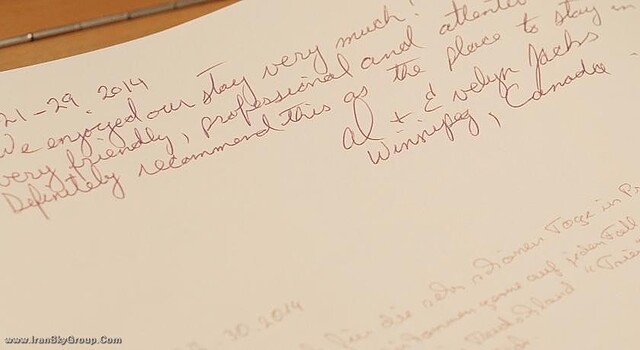 21-29. 2014
We enjoyed our stay very much!
very friendly, professional and attentive
Definitely recommend this as the place to stay in
Al + Evelyn Jacks
Winnipeg, Canada
30.2014
für die schönen Tage in
auf jeden Fall
Deutschland "Trier
www.IranSkyGroup.Com